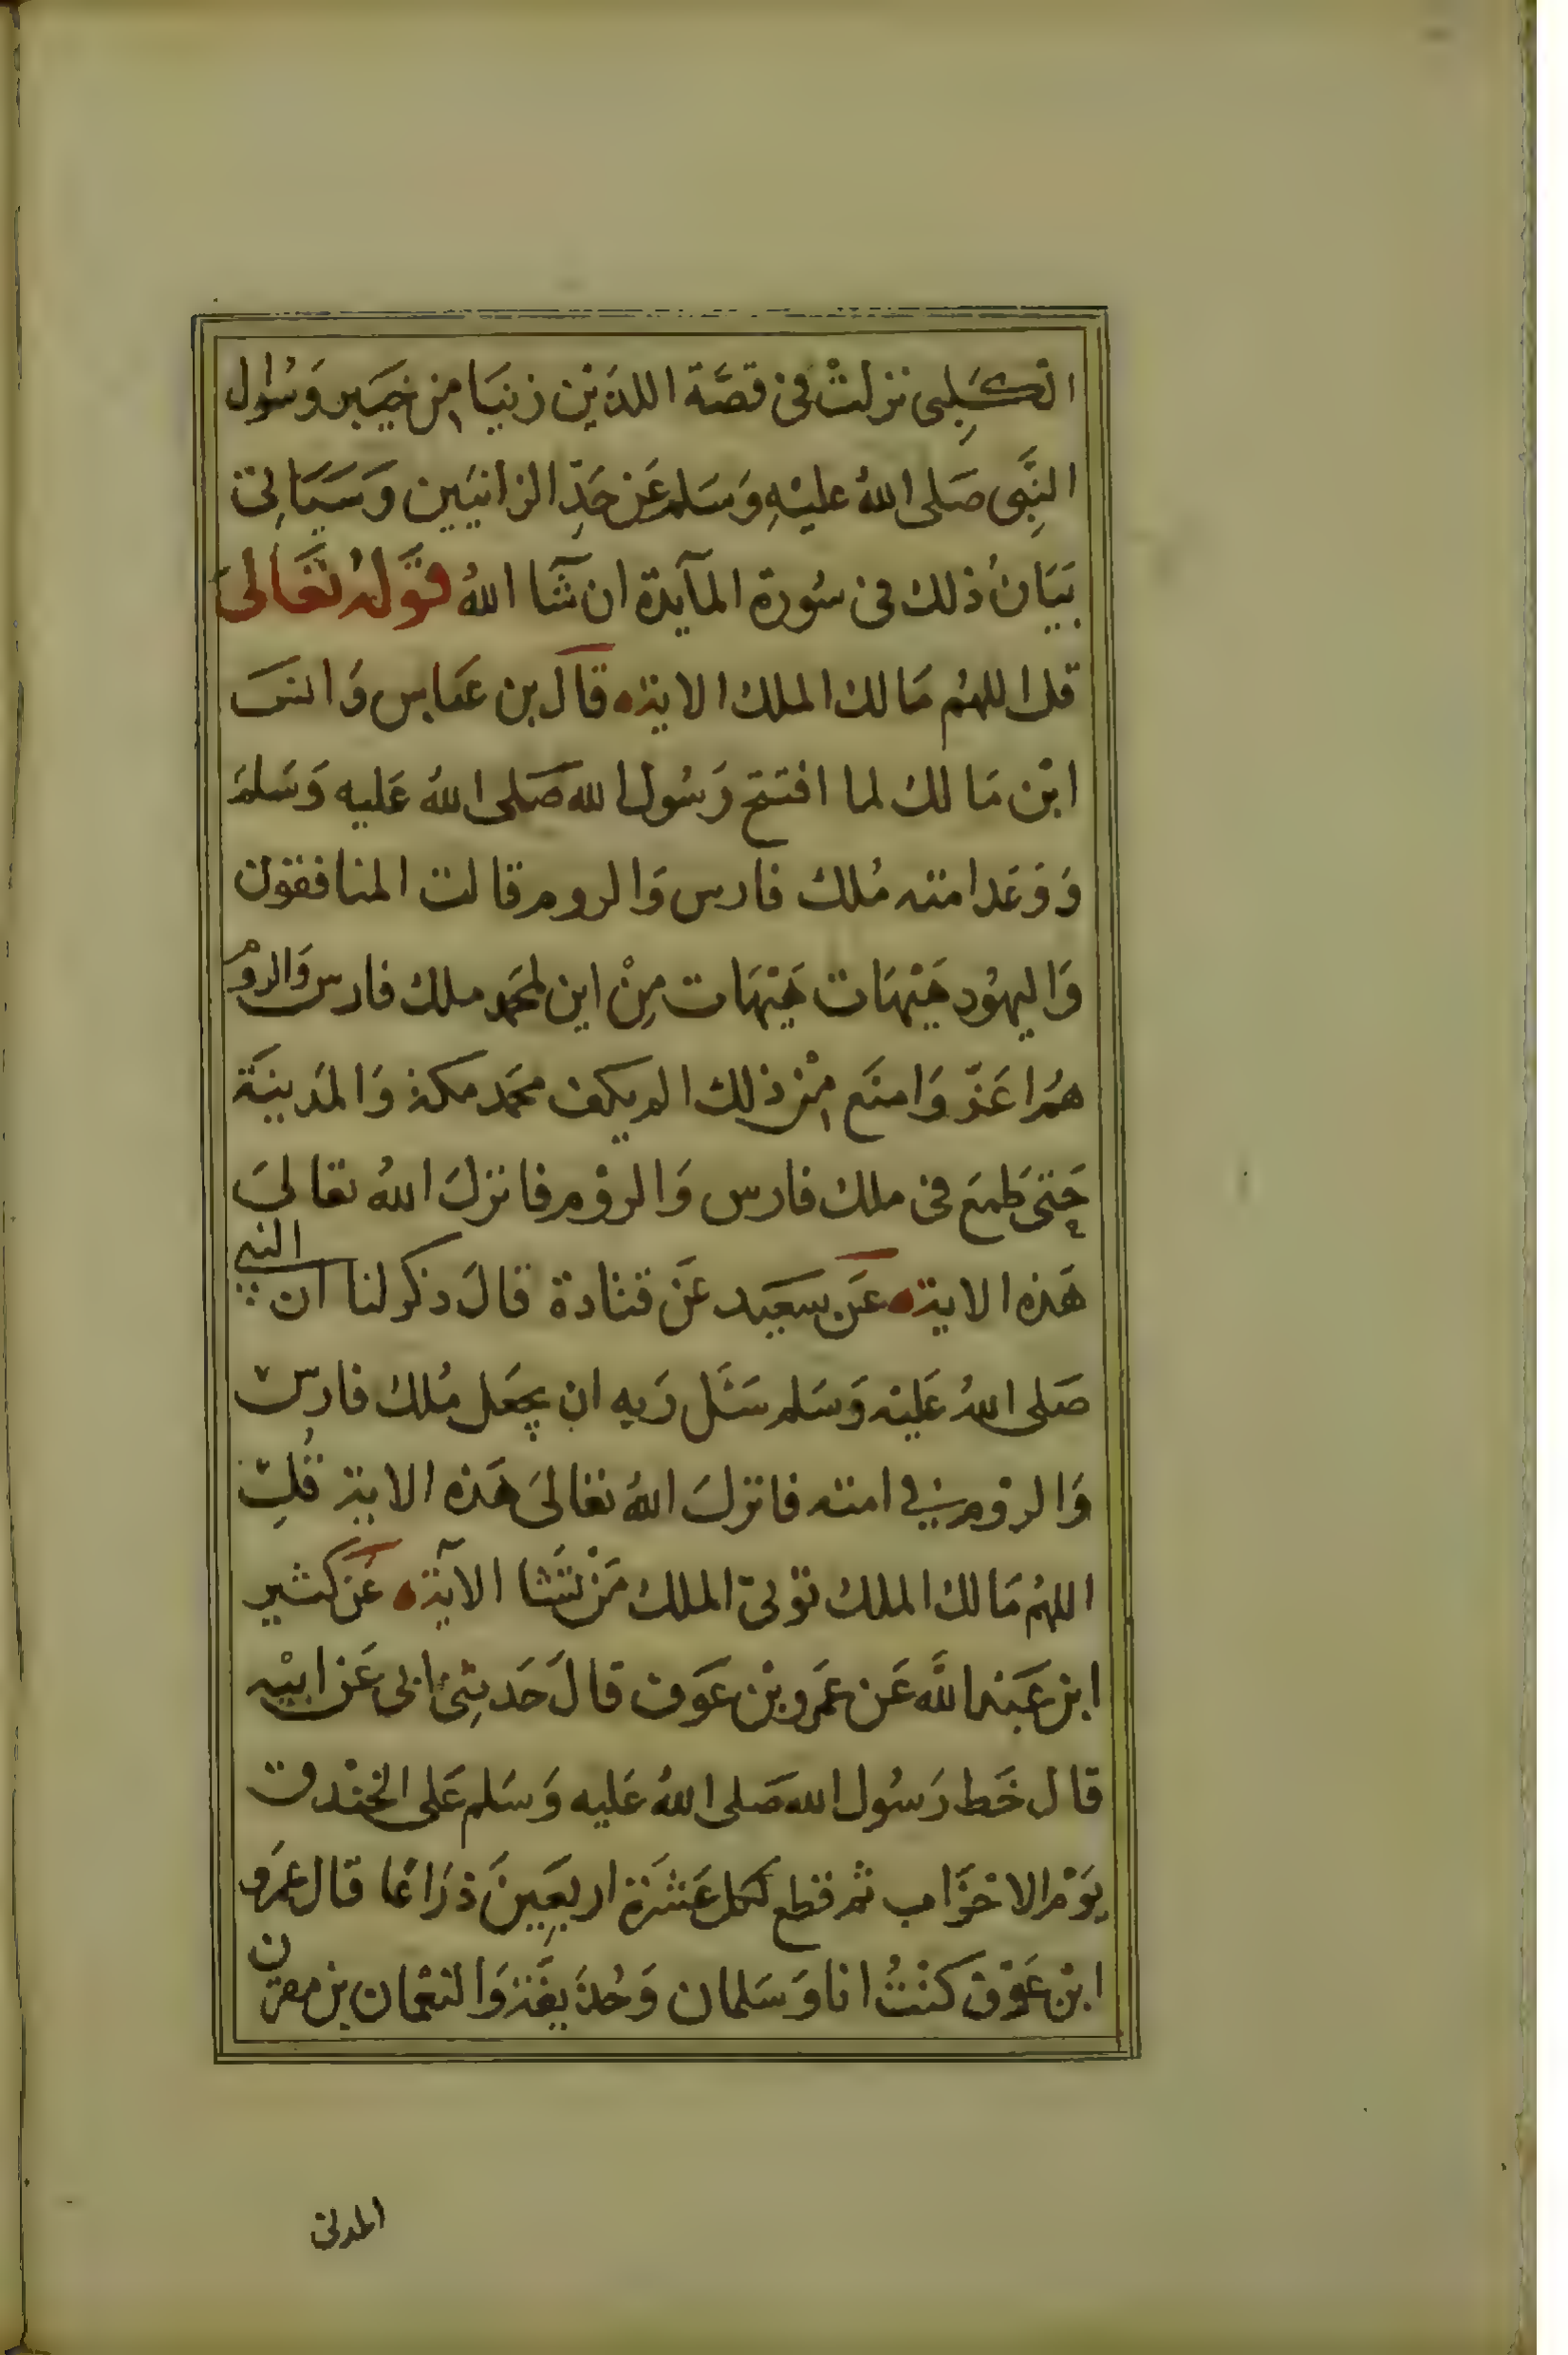 الكلبي نزلت في قصة اللذين زنيا من خيبر وسوال
النبي صلى الله عليه وسلم عن حد الزانيين وسياتي
بيان ذلك في سورة المآيدة ان شآ الله قوله تعالى
قل اللهم مالك الملك الاية قال بن عباس وانس
ابن مالك لما افتتح رسول الله صلى الله عليه وسلم
ووعد امته ملك فارس والروم قالت المنافقون
واليهود هيهات هيهات من اين لمحمد ملك فارس والروم
هم اعز وامنع من ذلك الم يكف محمد مكة والمدينة
حتى طمع في ملك فارس والروم فانزل الله تعالى
هذه الاية عن سعيد عن قتادة قال ذكر لنا ان النبي
صلى الله عليه وسلم سئل ربه ان يجعل ملك فارس
والروم في امته فانزل الله تعالى هذه الاية قل
اللهم مالك الملك توتي الملك من تشا الآية عن كثير
ابن عبد الله عن عمرو بن عوف قال حدثني ابي عن ابيه
قال خط رسول الله صلى الله عليه وسلم على الخندق
يوم الاحزاب ثم قطع لكل عشرة اربعين ذراعا قال عمرو
ابن عوف كنت انا وسلمان وحذيفة والنعمان بن مقرن
المدني